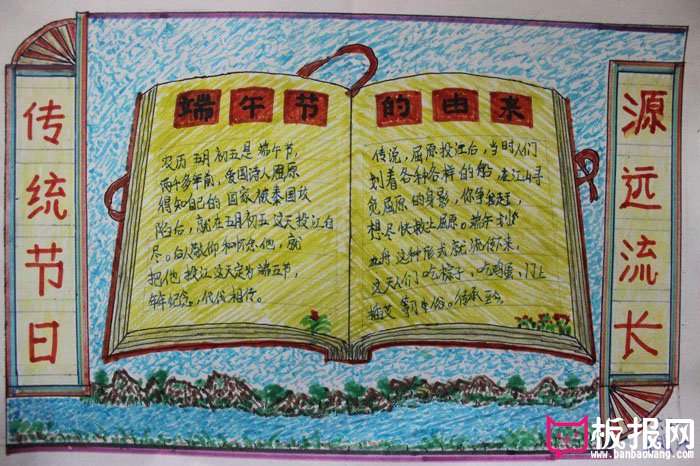 传统节日
端午节的由来
农历五月初五是端午节,
两千多年前,爱国诗人屈原
得知自己的国家被秦国攻
陷后,就在五月初五这天投江自
尽。后人敬仰和怀念他,就
把他投江这天定为端五节,
年年纪念,代代相传。
传说,屈原投江后,当时人们
划着各种各样的船在江上寻
觅屈原的身影,你争我赶,
想尽快救上屈原。端午划
龙舟这种形式就流传下来,
这天人们吃粽子、吃鸡蛋、门上
插艾等习俗。传承至今。
源远流长
板报网
www.banbaowang.com